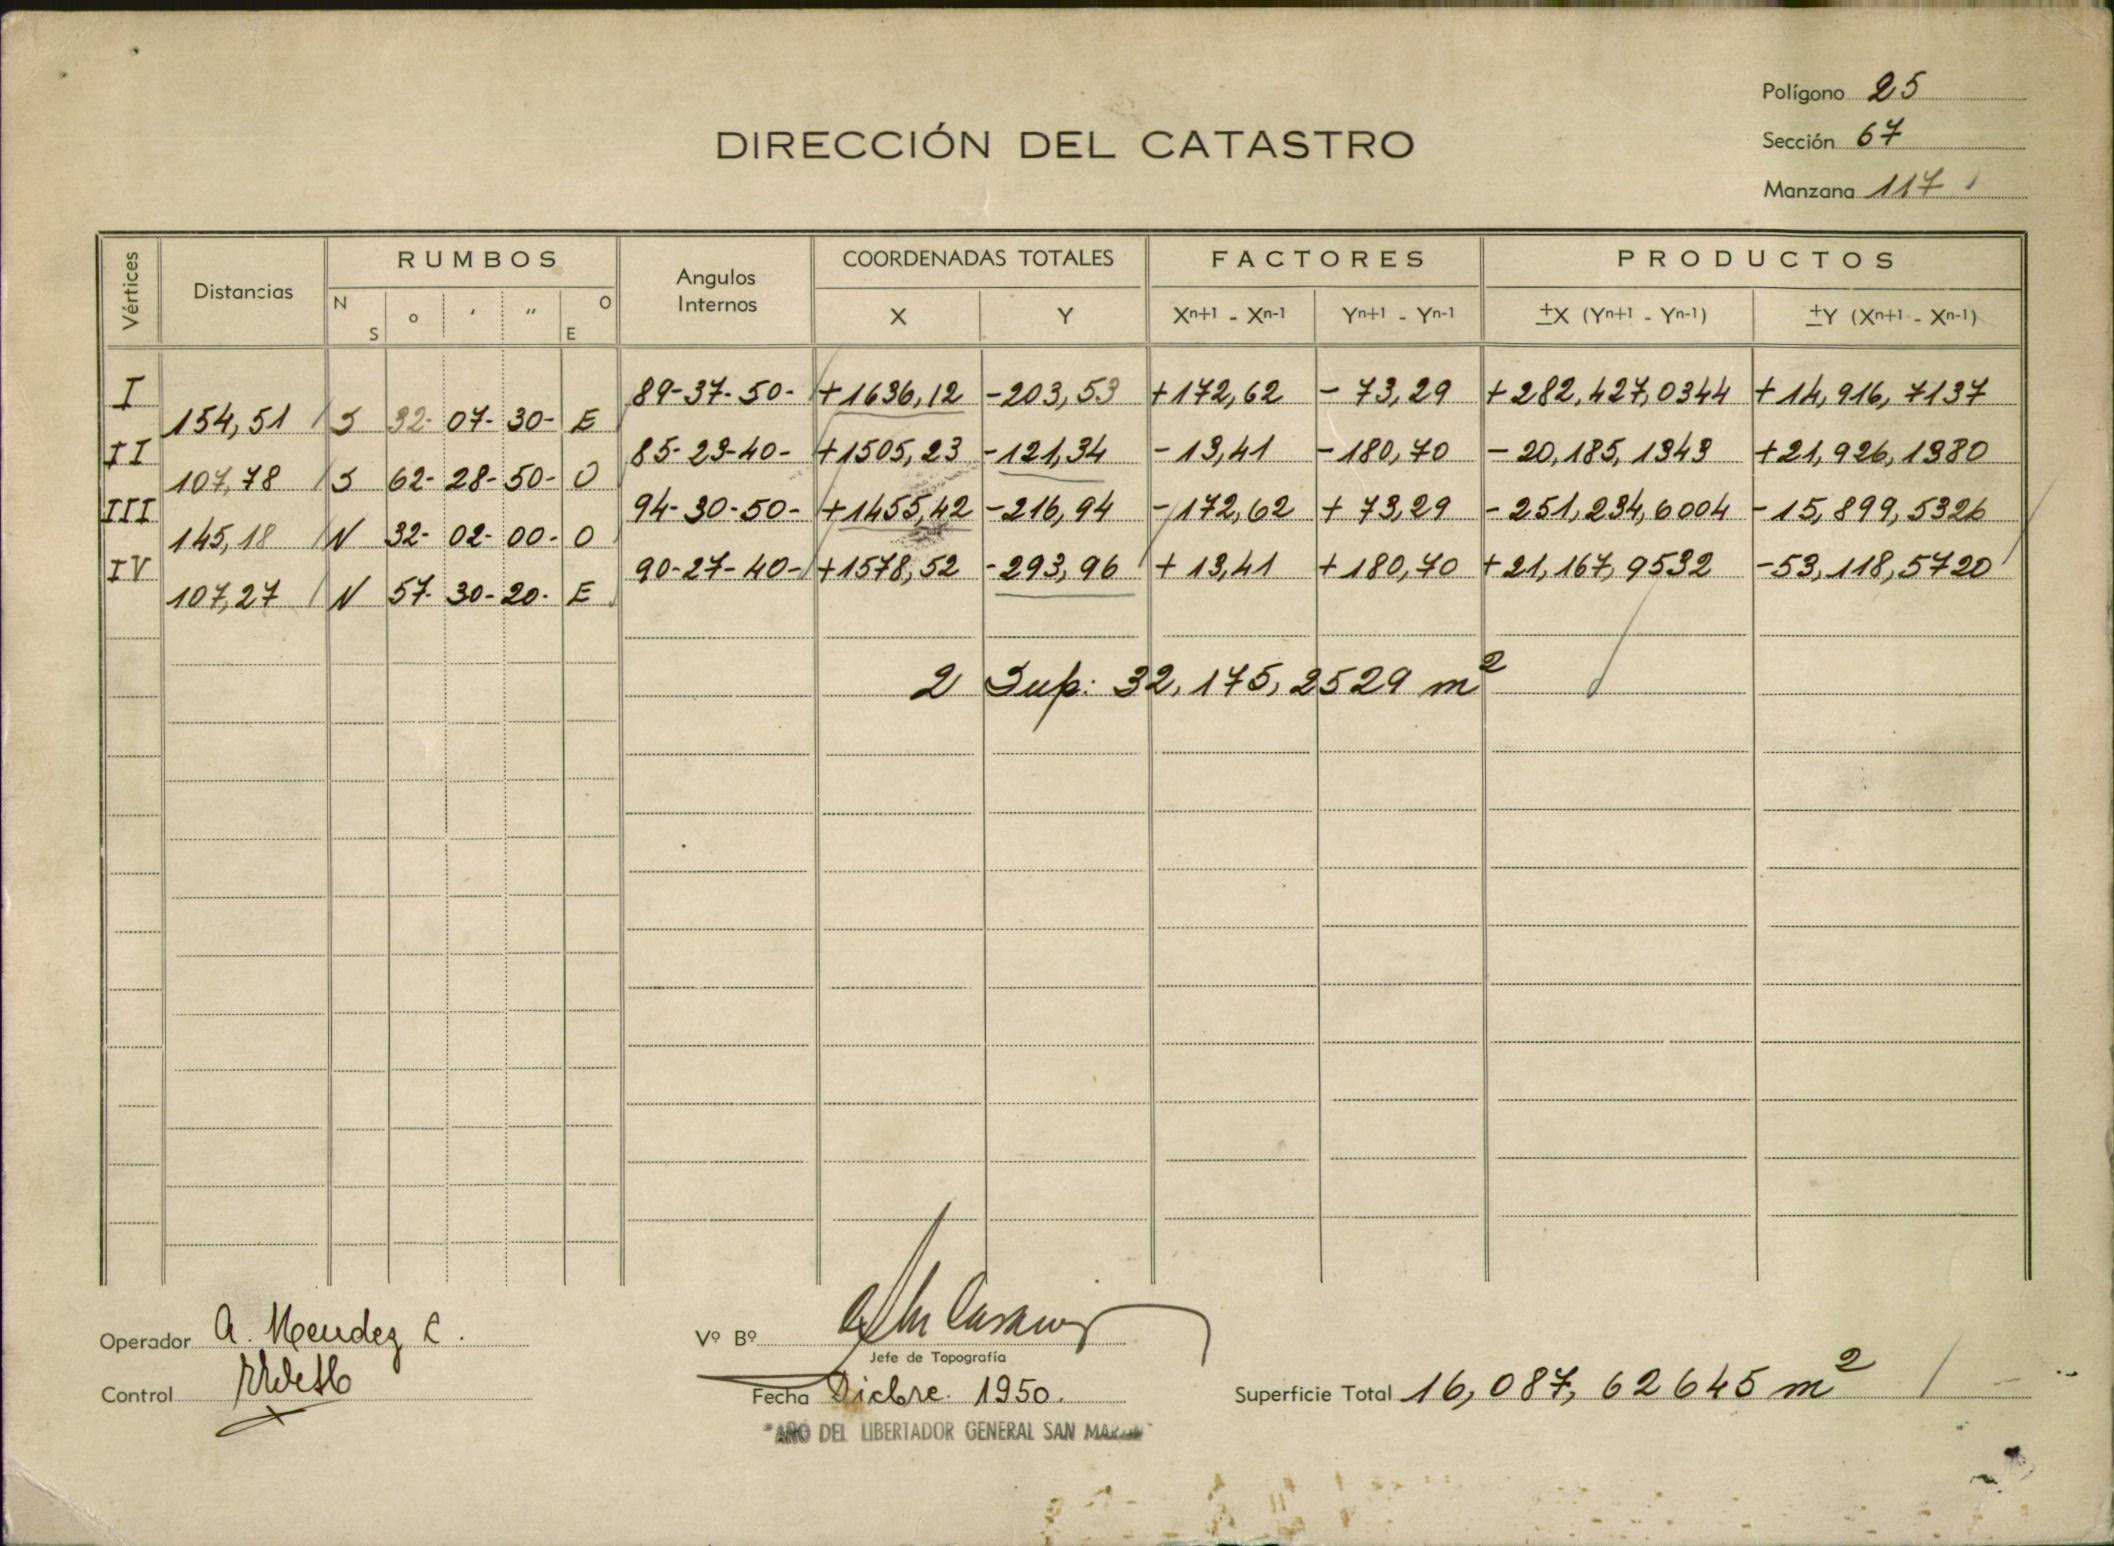 Polígono 25
DIRECCIÓN DEL CATASTRO
Sección 67
Manzana 117
Vértices Distancias RUMBOS Angulos Internos COORDENADAS TOTALES FACTORES PRODUCTOS
N S o ' " O E X Y Xn+1 - Xn-1 Yn+1 - Yn-1 ±X (Yn+1 - Yn-1) ±Y (Xn+1 - Xn-1)
I 89-37-50- +1636,12 -203,53 +172,62 - 73,29 +282,427,0344 +14,916,7137
154,51 S 32- 07- 30- E
II 85-23-40- +1505,23 -121,34 -13,41 -180,70 -20,185,1343 +21,926,1380
107,78 S 62- 28- 50- O
III 94-30-50- +1455,42 -216,94 -172,62 + 73,29 -251,234,6004 -15,899,5326
145,18 N 32- 02- 00- O
IV 90-27-40- +1578,52 -293,96 + 13,41 +180,70 +21,167,9532 -53,118,5720
107,27 N 57- 30- 20- E
2 Sup: 32,175,2529 m²
Operador A. Mendez C.
Vº Bº
Jefe de Topografía
Control
Fecha Dicbre. 1950.
Superficie Total 16,087,62645 m²
"AÑO DEL LIBERTADOR GENERAL SAN MARTIN"